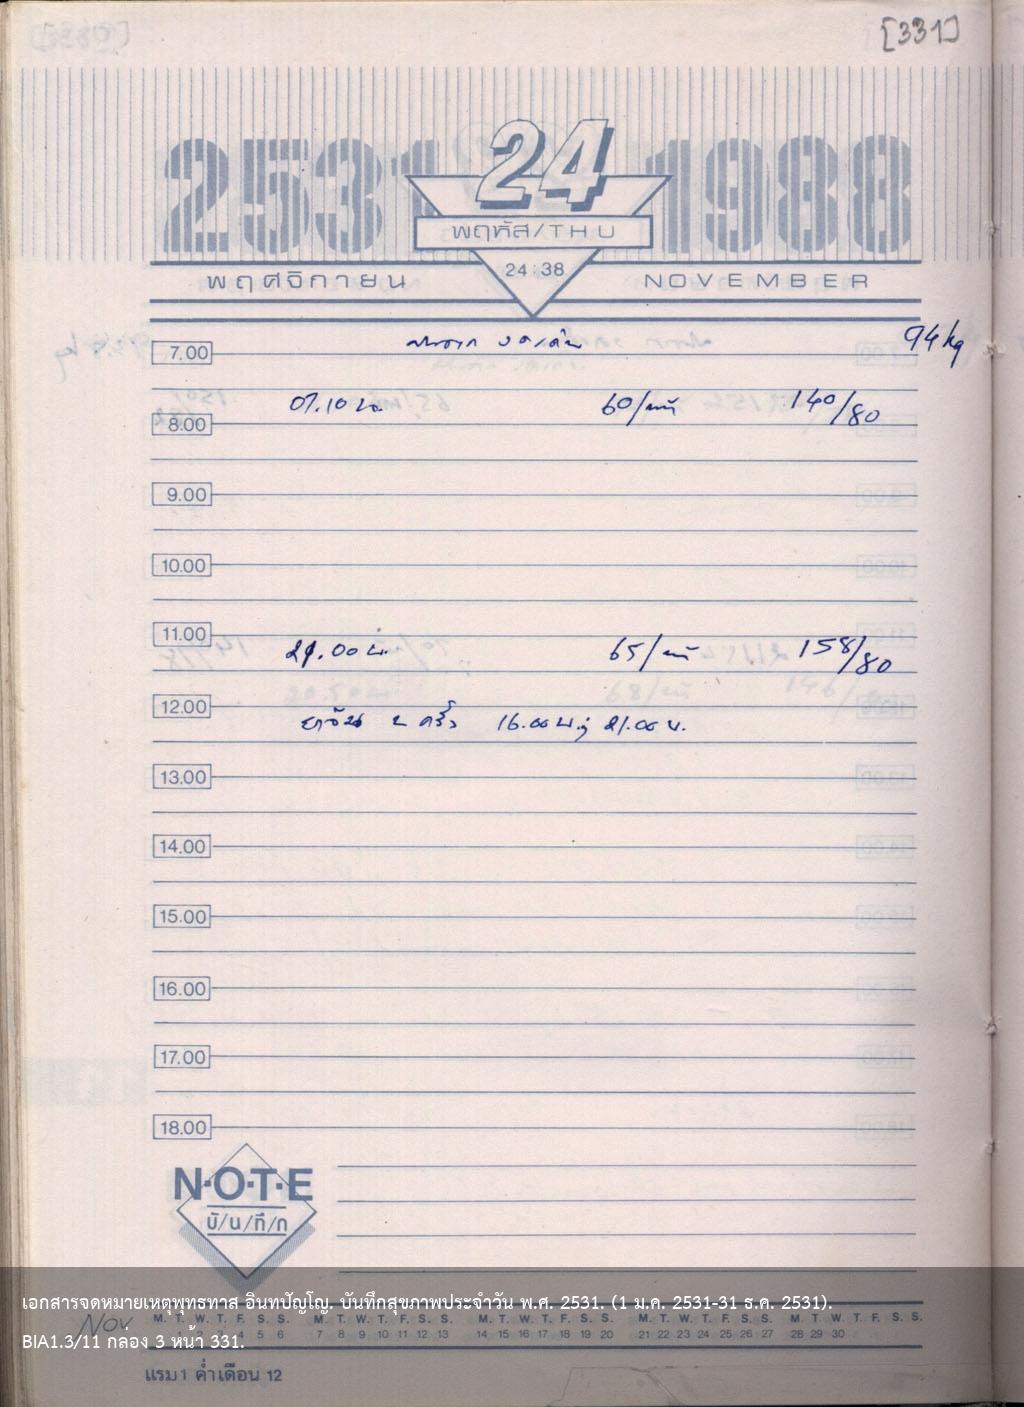 [331]
2531 24 1988
พฤหัส/THU
พฤศจิกายน 24:38 NOVEMBER
7.00 94 kg
07.10 น. 60/นาที 140/80
8.00
9.00
10.00
11.00
21.00 น. 65/นาที 158/80
12.00
2 ครั้ง 16.00 น., 21.00 น.
13.00
14.00
15.00
16.00
17.00
18.00
N·O·T·E
บั/น/ทึ/ก
เอกสารจดหมายเหตุพุทธทาส อินทปัญโญ. บันทึกสุขภาพประจำวัน พ.ศ. 2531. (1 ม.ค. 2531-31 ธ.ค. 2531).
Nov. M. T. W. T. F. S. S. M. T. W. T. F. S. S. M. T. W. T. F. S. S. M. T. W. T. F. S. S. M. T. W. T. F. S. S.
1 2 3 4 5 6 7 8 9 10 11 12 13 14 15 16 17 18 19 20 21 22 23 24 25 26 27 28 29 30
BIA1.3/11 กล่อง 3 หน้า 331.
แรม 1 ค่ำ เดือน 12